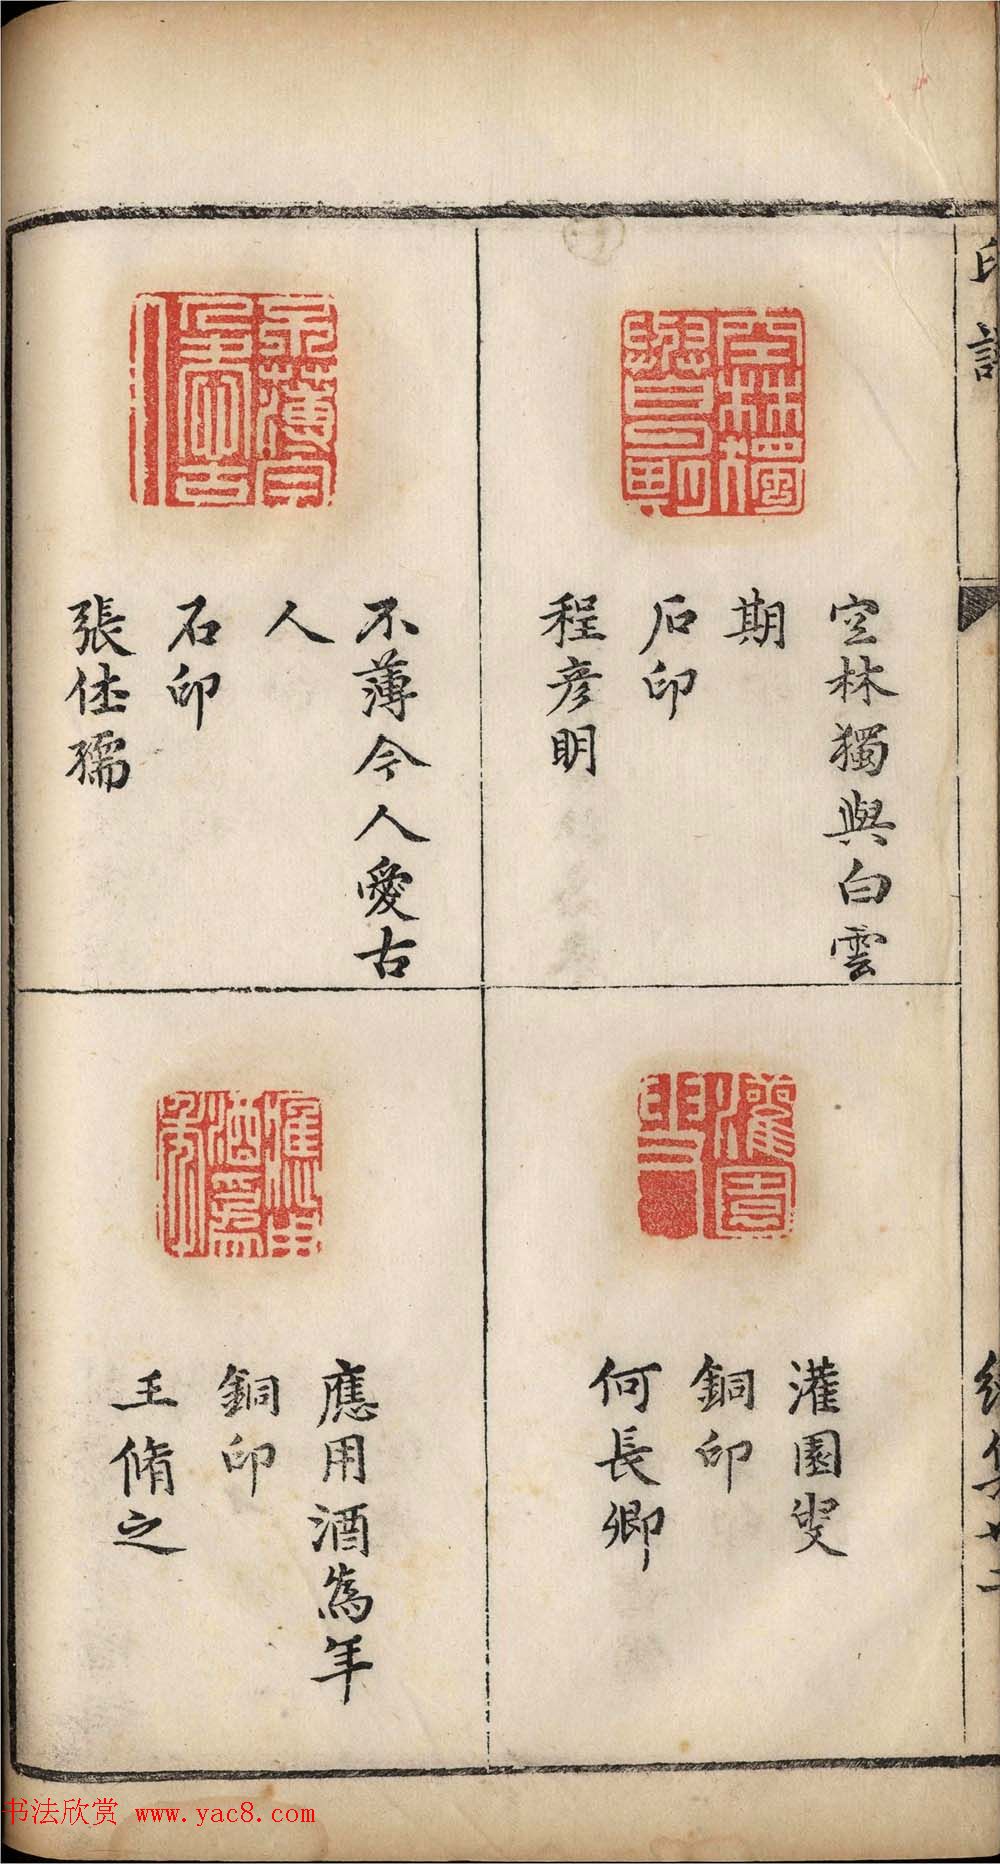 印譜
空林獨與白雲
期
石印
程彥明
不薄今人愛古
人
石印
張仕孺
灌園叟
銅印
何長卿
應用酒為年
銅印
王脩之
书法欣赏 www.yac8.com